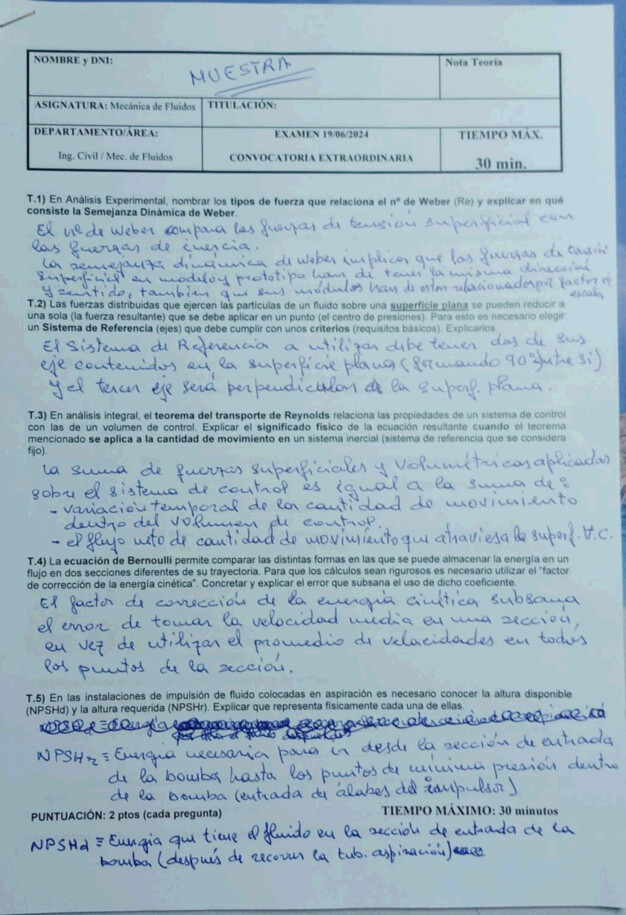 NOMBRE y DNI:
MUESTRA
Nota Teoría
ASIGNATURA: Mecánica de Fluidos
TITULACIÓN:
DEPARTAMENTO/ÁREA:
Ing. Civil / Mec. de Fluidos
EXAMEN 19/06/2024
CONVOCATORIA EXTRAORDINARIA
TIEMPO MÁX.
30 min.
T.1) En Análisis Experimental, nombrar los tipos de fuerza que relaciona el nº de Weber (Re) y explicar en qué
consiste la Semejanza Dinámica de Weber.
El nº de Weber compara las fuerzas de tensión superficial con
las fuerzas de inercia.
La semejanza dinámica de Weber implica que las fuerzas de tensión
superficial en modelo y prototipo han de tener la misma dirección
y sentido, también que sus módulos han de estar relacionados por factor de
escala
T.2) Las fuerzas distribuidas que ejercen las partículas de un fluido sobre una superficie plana se pueden reducir a
una sola (la fuerza resultante) que se debe aplicar en un punto (el centro de presiones). Para esto es necesario elegir
un Sistema de Referencia (ejes) que debe cumplir con unos criterios (requisitos básicos). Explicarlos.
El Sistema de Referencia a utilizar debe tener dos de sus
eje contenidos en la superficie plana (formando 90º entre sí)
y el tercer eje será perpendicular a la superf. plana.
T.3) En análisis integral, el teorema del transporte de Reynolds relaciona las propiedades de un sistema de control
con las de un volumen de control. Explicar el significado físico de la ecuación resultante cuando el teorema
mencionado se aplica a la cantidad de movimiento en un sistema inercial (sistema de referencia que se considera
fijo).
La suma de fuerzas superficiales y volumétricas aplicadas
sobre el sistema de control es igual a la suma de:
- variación temporal de la cantidad de movimiento
dentro del volumen de control.
- el flujo neto de cantidad de movimiento que atraviesa la superf. V.C.
T.4) La ecuación de Bernoulli permite comparar las distintas formas en las que se puede almacenar la energía en un
flujo en dos secciones diferentes de su trayectoria. Para que los cálculos sean rigurosos es necesario utilizar el "factor
de corrección de la energía cinética". Concretar y explicar el error que subsana el uso de dicho coeficiente.
El factor de corrección de la energía cinética subsana
el error de tomar la velocidad media en una sección,
en vez de utilizar el promedio de velocidades en todos
los puntos de la sección.
T.5) En las instalaciones de impulsión de fluido colocadas en aspiración es necesario conocer la altura disponible
(NPSHd) y la altura requerida (NPSHr). Explicar que representa físicamente cada una de ellas.
NPSHr ≡ Energía necesaria para ir desde la sección de entrada
de la bomba hasta los puntos de mínima presión dentro
de la bomba (entrada de álabes del impulsor)
PUNTUACIÓN: 2 ptos (cada pregunta)
TIEMPO MÁXIMO: 30 minutos
NPSHd ≡ Energía que tiene el fluido en la sección de entrada de la
bomba (después de recorrer la tub. aspiración)